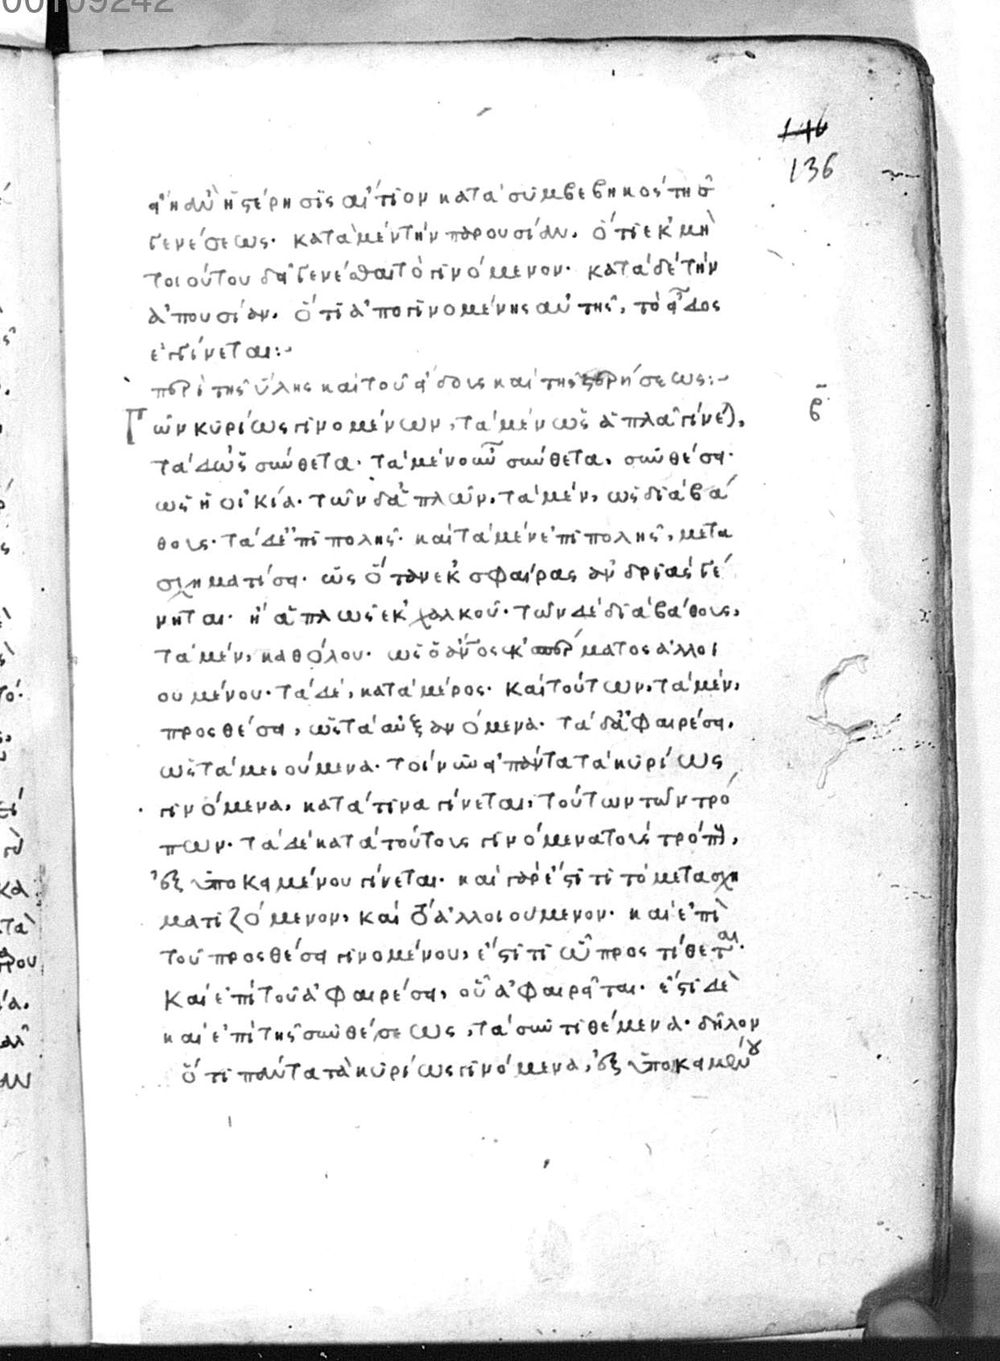 00109242
146
136
εἴη ἂν ἡ στέρησις αἴτιον κατὰ συμβεβηκὸς τῆς
γενέσεως· κατὰ μὲν τὴν παρουσίαν, ὅτι ἐκ μὴ
τοιούτου δεῖ γενέσθαι τὸ γινόμενον· κατὰ δὲ τὴν
ἀπουσίαν, ὅτι ἀπογινομένης αὐτῆς, τὸ εἶδος
ἐγγίνεται:~
περὶ τῆς ὕλης καὶ τοῦ εἴδους καὶ τῆς στερήσεως:~
β
Τῶν κυρίως γινομένων, τὰ μὲν ὡς ἁπλᾶ γίνεται,
τὰ δ' ὡς σύνθετα· τὰ μὲν οὖν σύνθετα, συνθέσει·
ὡς ἡ οἰκία· τῶν δ' ἁπλῶν, τὰ μὲν, ὡς διὰ βά
θους· τὰ δ' ἐπιπολῆς· καὶ τὰ μὲν ἐπιπολῆς, μετα
σχηματίσει· ὡς ὅταν ἐκ σφαίρας ἀνδριὰς γέ
νηται· ἢ ἁπλῶς ἐκ χαλκοῦ· τῶν δὲ διὰ βάθους,
τὰ μὲν, καθόλου· ὡς ὁ ἄνος ἐκ σπέρματος ἀλλοι
ουμένου· τὰ δὲ, κατὰ μέρος· καὶ τούτων, τὰ μὲν,
προσθέσει, ὡς τὰ αὐξανόμενα· τὰ δ' ἀφαιρέσει,
ὡς τὰ μειούμενα· τοίνυν εἰ πάντα τὰ κυρίως
γινόμενα, κατά τινα γίνεται, τούτων τῶν τρό
πων· τὰ δὲ κατὰ τούτους γινόμενα τοὺς τρόπους,
ἐξ ὑποκειμένου γίνεται· καὶ γὰρ ἔστι τι τὸ μετασχη
ματιζόμενον, καὶ τὸ ἀλλοιούμενον· καὶ ἐπὶ
τοῦ προσθέσει γινομένου, ἔστι τι ᾧ προστίθεται·
καὶ ἐπὶ τοῦ ἀφαιρέσει, οὗ ἀφαιρεῖται· ἔστι δὲ
καὶ ἐπὶ τῆς συνθέσεως, τὰ συντιθέμενα· δῆλον
ὅτι πάντα τὰ κυρίως γινόμενα, ἐξ ὑποκειμένου